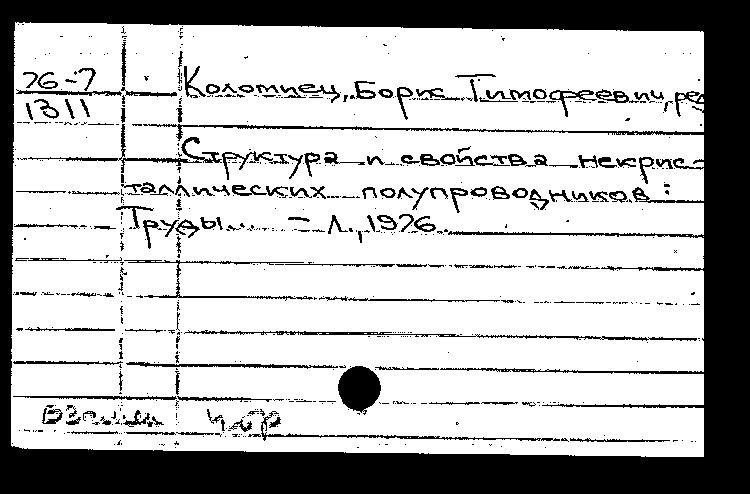 76-7
1311
Коломиец, Борис Тимофеевич, ред
Структура и свойства некрис-
таллических полупроводников:
Труды... - Л., 1976.